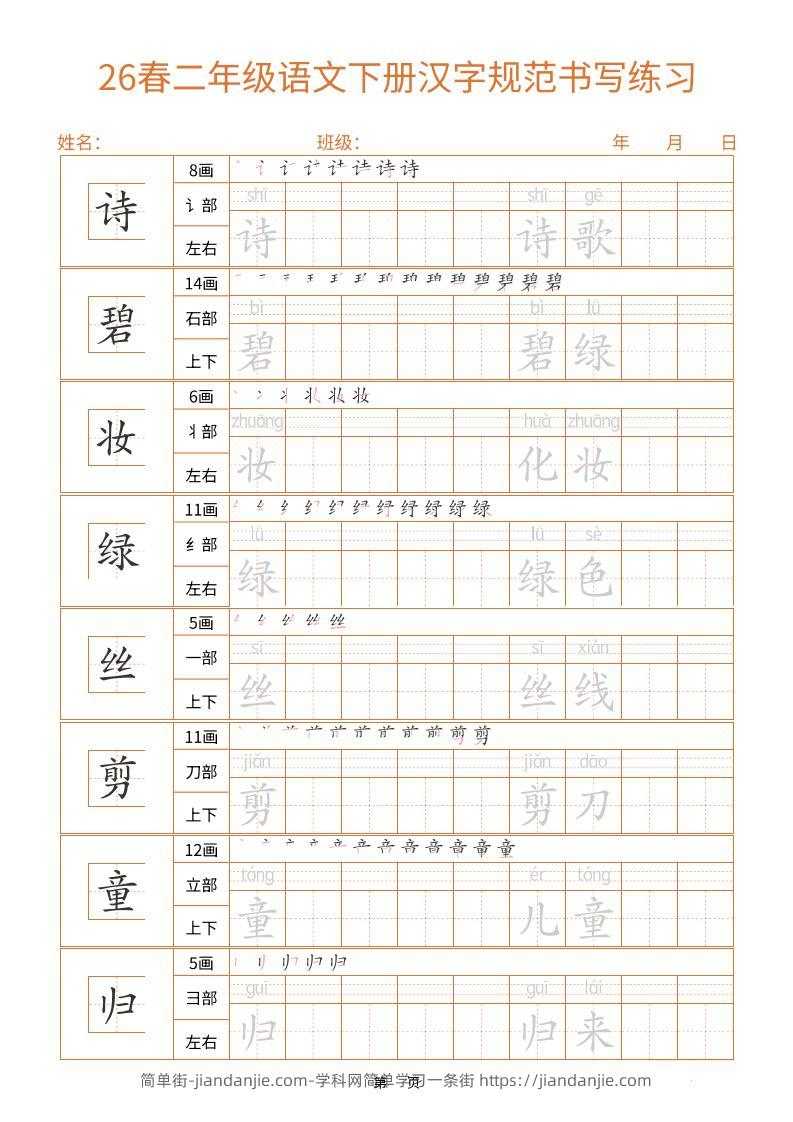 26春二年级语文下册汉字规范书写练习
姓名： 班级： 年 月 日
诗 8画
讠部 shī shī gē
左右 诗 诗 歌
碧 14画
石部 bì bì lǜ
上下 碧 碧 绿
妆 6画
丬部 zhuāng huà zhuāng
左右 妆 化 妆
绿 11画
纟部 lǜ lǜ sè
左右 绿 绿 色
丝 5画
一部 sī sī xiàn
上下 丝 丝 线
剪 11画
刀部 jiǎn jiǎn dāo
上下 剪 剪 刀
童 12画
立部 tóng ér tóng
上下 童 儿 童
归 5画
彐部 guī guī lái
左右 归 归 来
简单街-jiandanjie.com-学科网简单学习一条街 https://jiandanjie.com
第 页